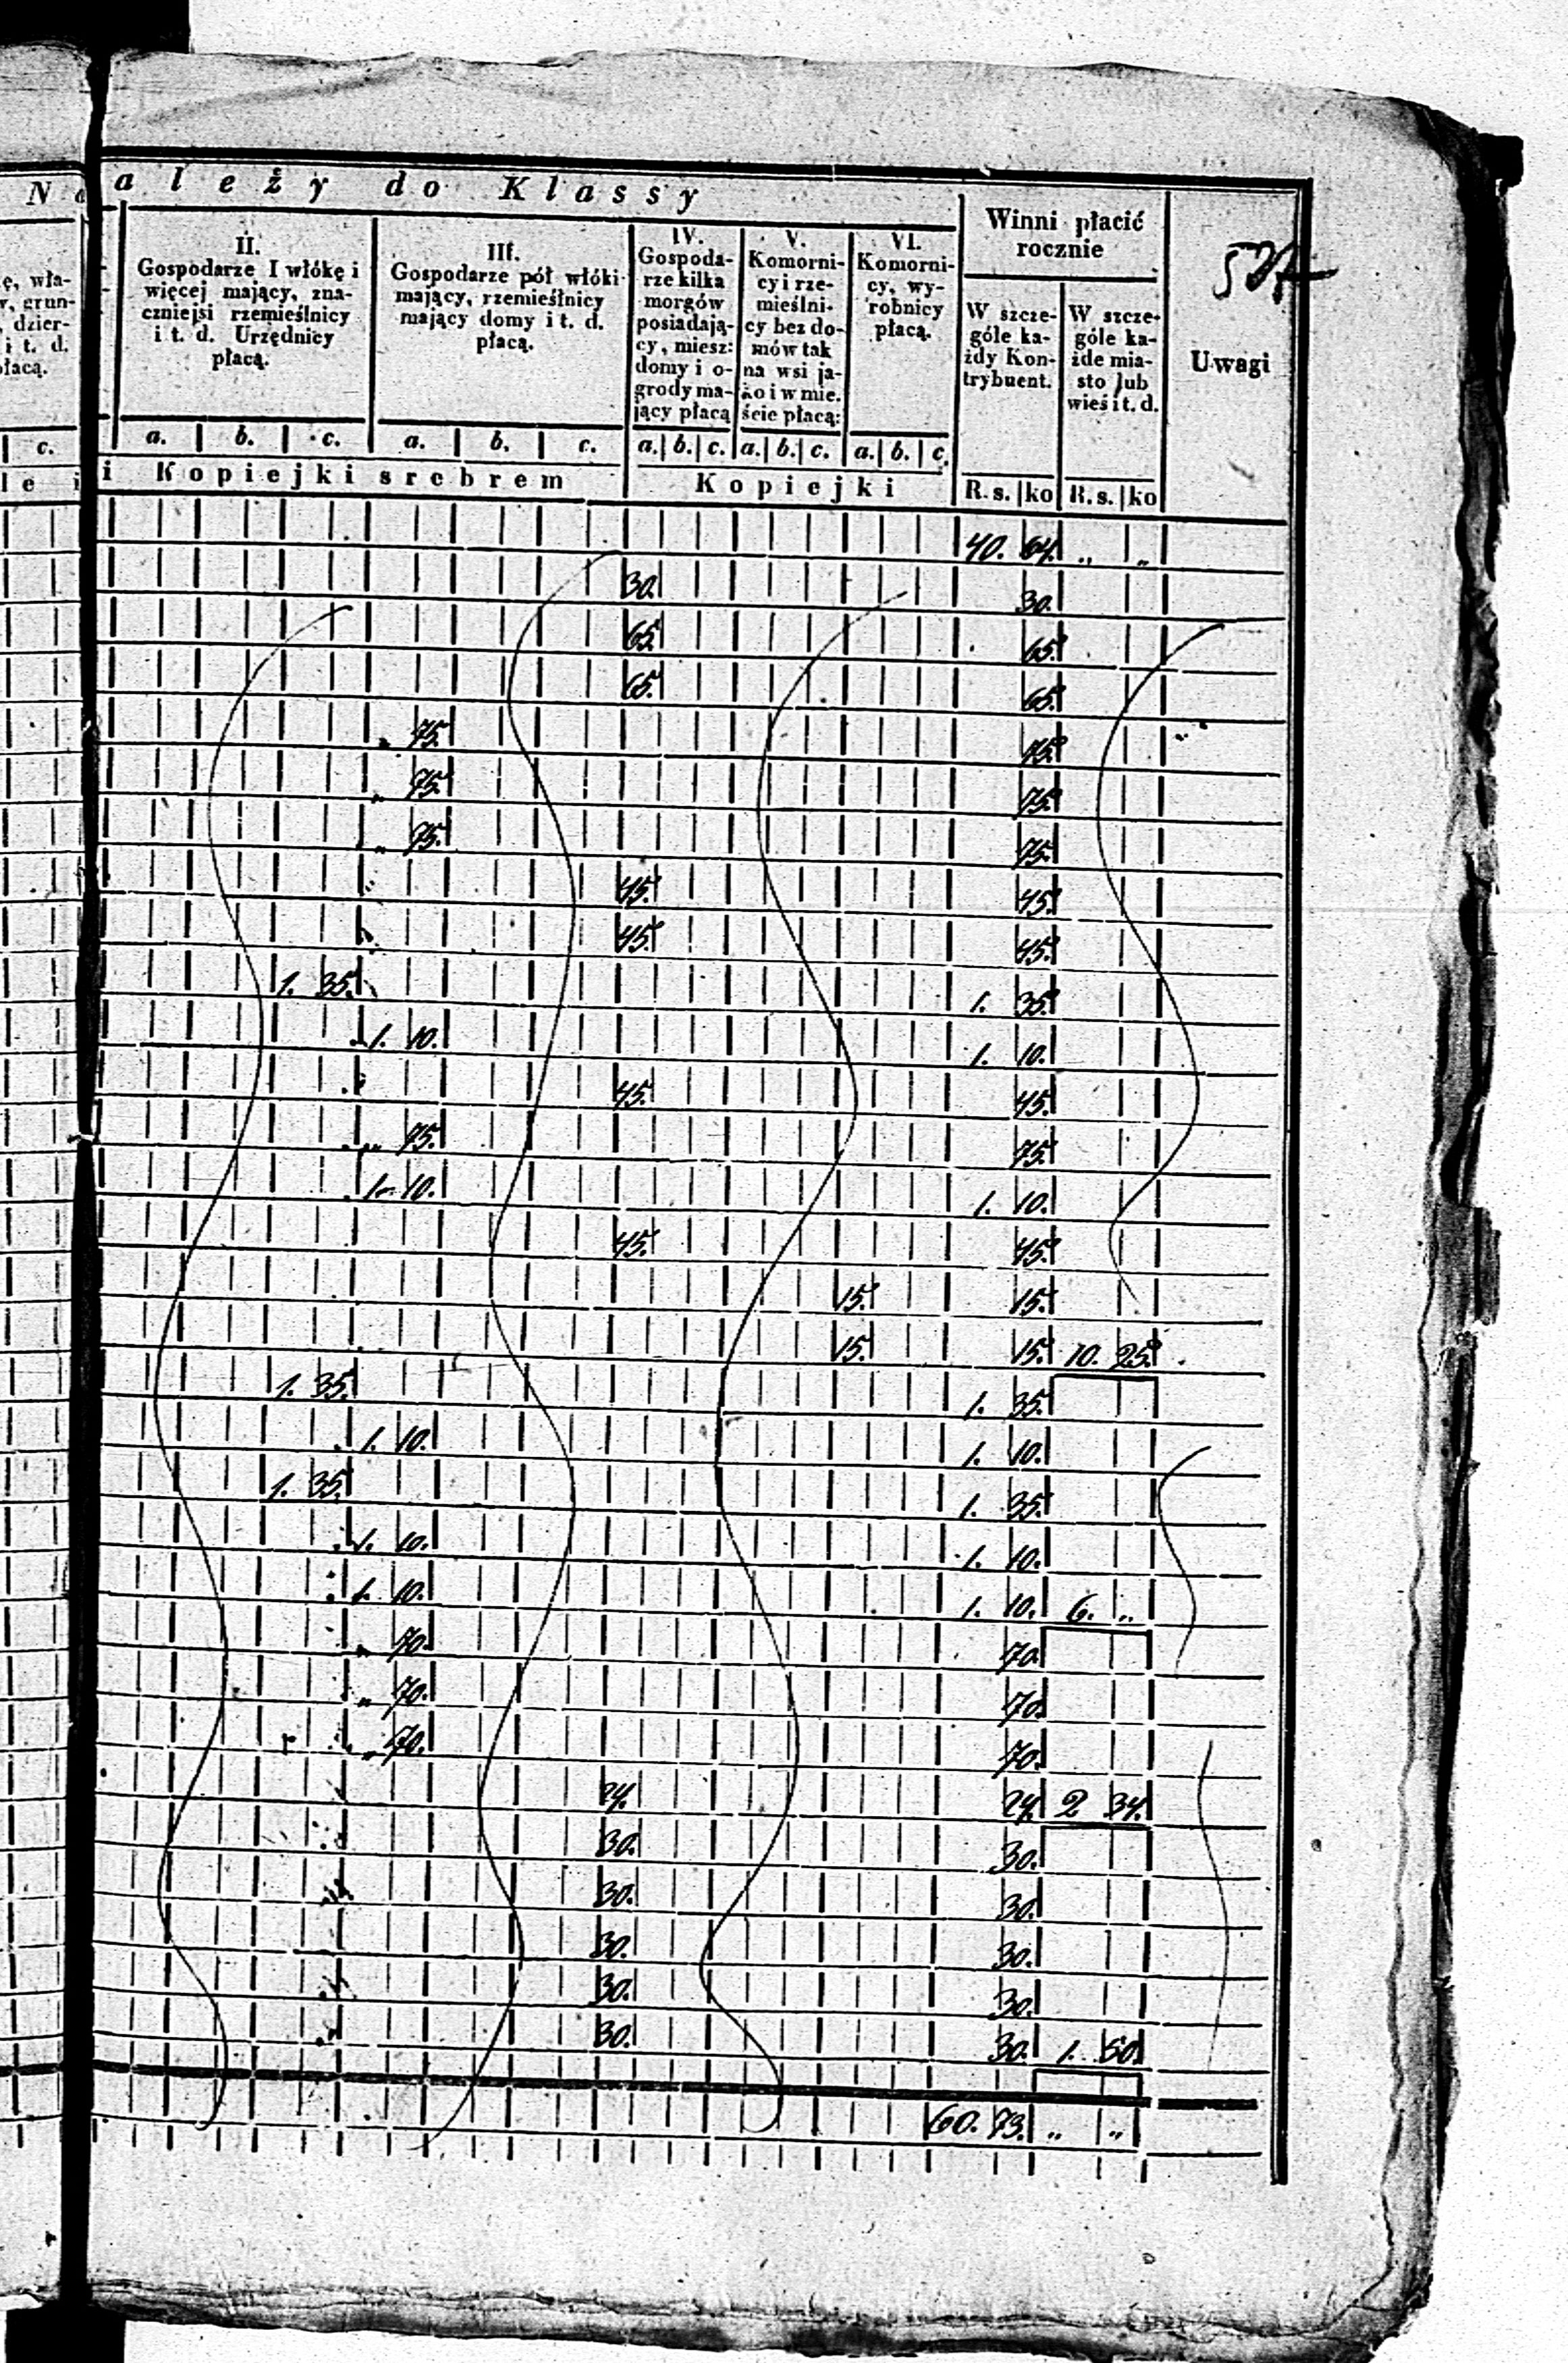 N a l e ż y d o K l a s s y
Winni płacić
rocznie
Uwagi
ę, wła-
grun-
dzier-
i t. d.
płacą.
II.
Gospodarze I włókę i
więcej mający, zna-
czniejsi rzemieślnicy
i t. d. Urzędnicy
płacą.
III.
Gospodarze pół włóki
mający, rzemieślnicy
mający domy i t. d.
płacą.
IV.
Gospoda-
rze kilka
morgów
posiadają-
cy, miesz:
domy i o-
grody ma-
jący płacą
V.
Komorni-
cy i rze-
mieślni-
cy bez do-
mów tak
na wsi ja-
ko i w mie.
ście płacą:
VI.
Komorni-
cy, wy-
robnicy
płacą.
W szcze-
góle ka-
żdy Kon-
trybuent.
W szcze-
góle ka-
żde mia-
sto lub
wieś i t. d.
c. a. b. c. a. b. c. a. b. c. a. b. c. a. b. c.
le i i K o p i e j k i s r e b r e m K o p i e j k i R. s. ko R. s. ko
40. 64. „ „
30. 30.
65. 65.
65. 65.
„ 75. 75.
„ 75. 75.
„ 75. 75.
45. 45.
45. 45.
1. 35. 1. 35.
1. 10. 1. 10.
45. 45.
„ 75. 75.
1. 10. 1. 10.
45. 45.
15. 15.
15. 15. 10. 25.
1. 35. 1. 35.
1. 10. 1. 10.
1. 35. 1. 35.
1. 10. 1. 10.
1. 10. 1. 10. 6. „
„ 70. 70.
„ 70. 70.
„ 70. 70.
24. 24. 2 34.
30. 30.
30. 30.
30. 30.
30. 30.
30. 30. 1. 50.
60. 73. „ „